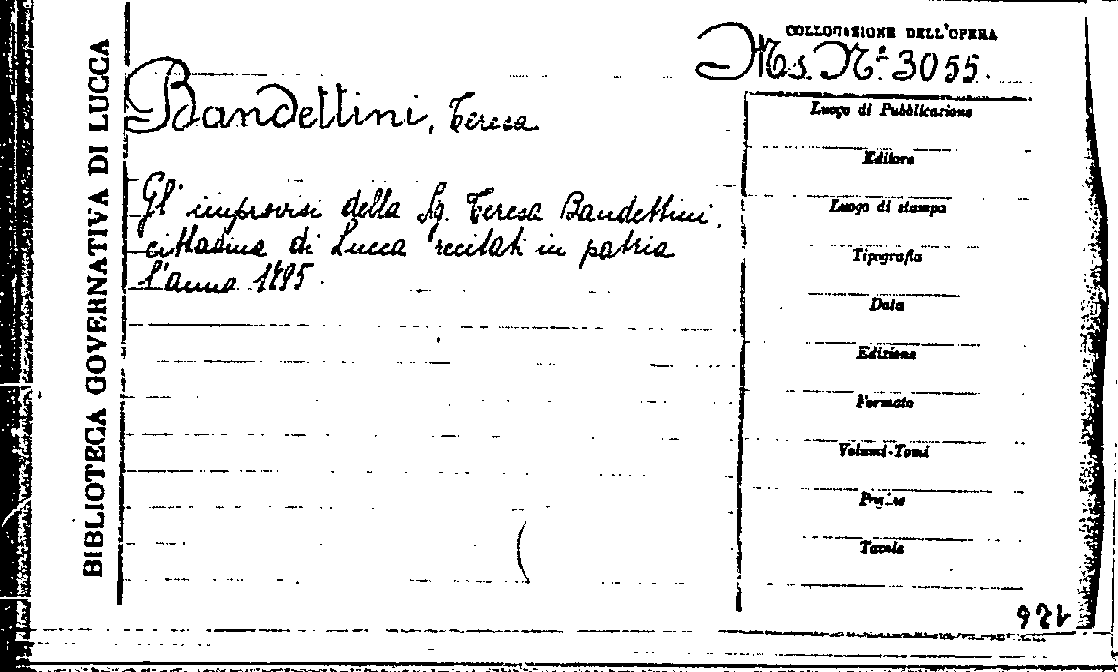 BIBLIOTECA GOVERNATIVA DI LUCCA
COLLOCAZIONE DELL'OPERA
Ms. Nº 3055.
Bandettini, Teresa
Gli improvisi della Sg. Teresa Bandettini,
cittadina di Lucca recitati in patria
l'anno 1795.
Luogo di Pubblicazione
Editore
Luogo di stampa
Tipografia
Data
Edizione
Formato
Volumi-Tomi
Pagine
Tavole